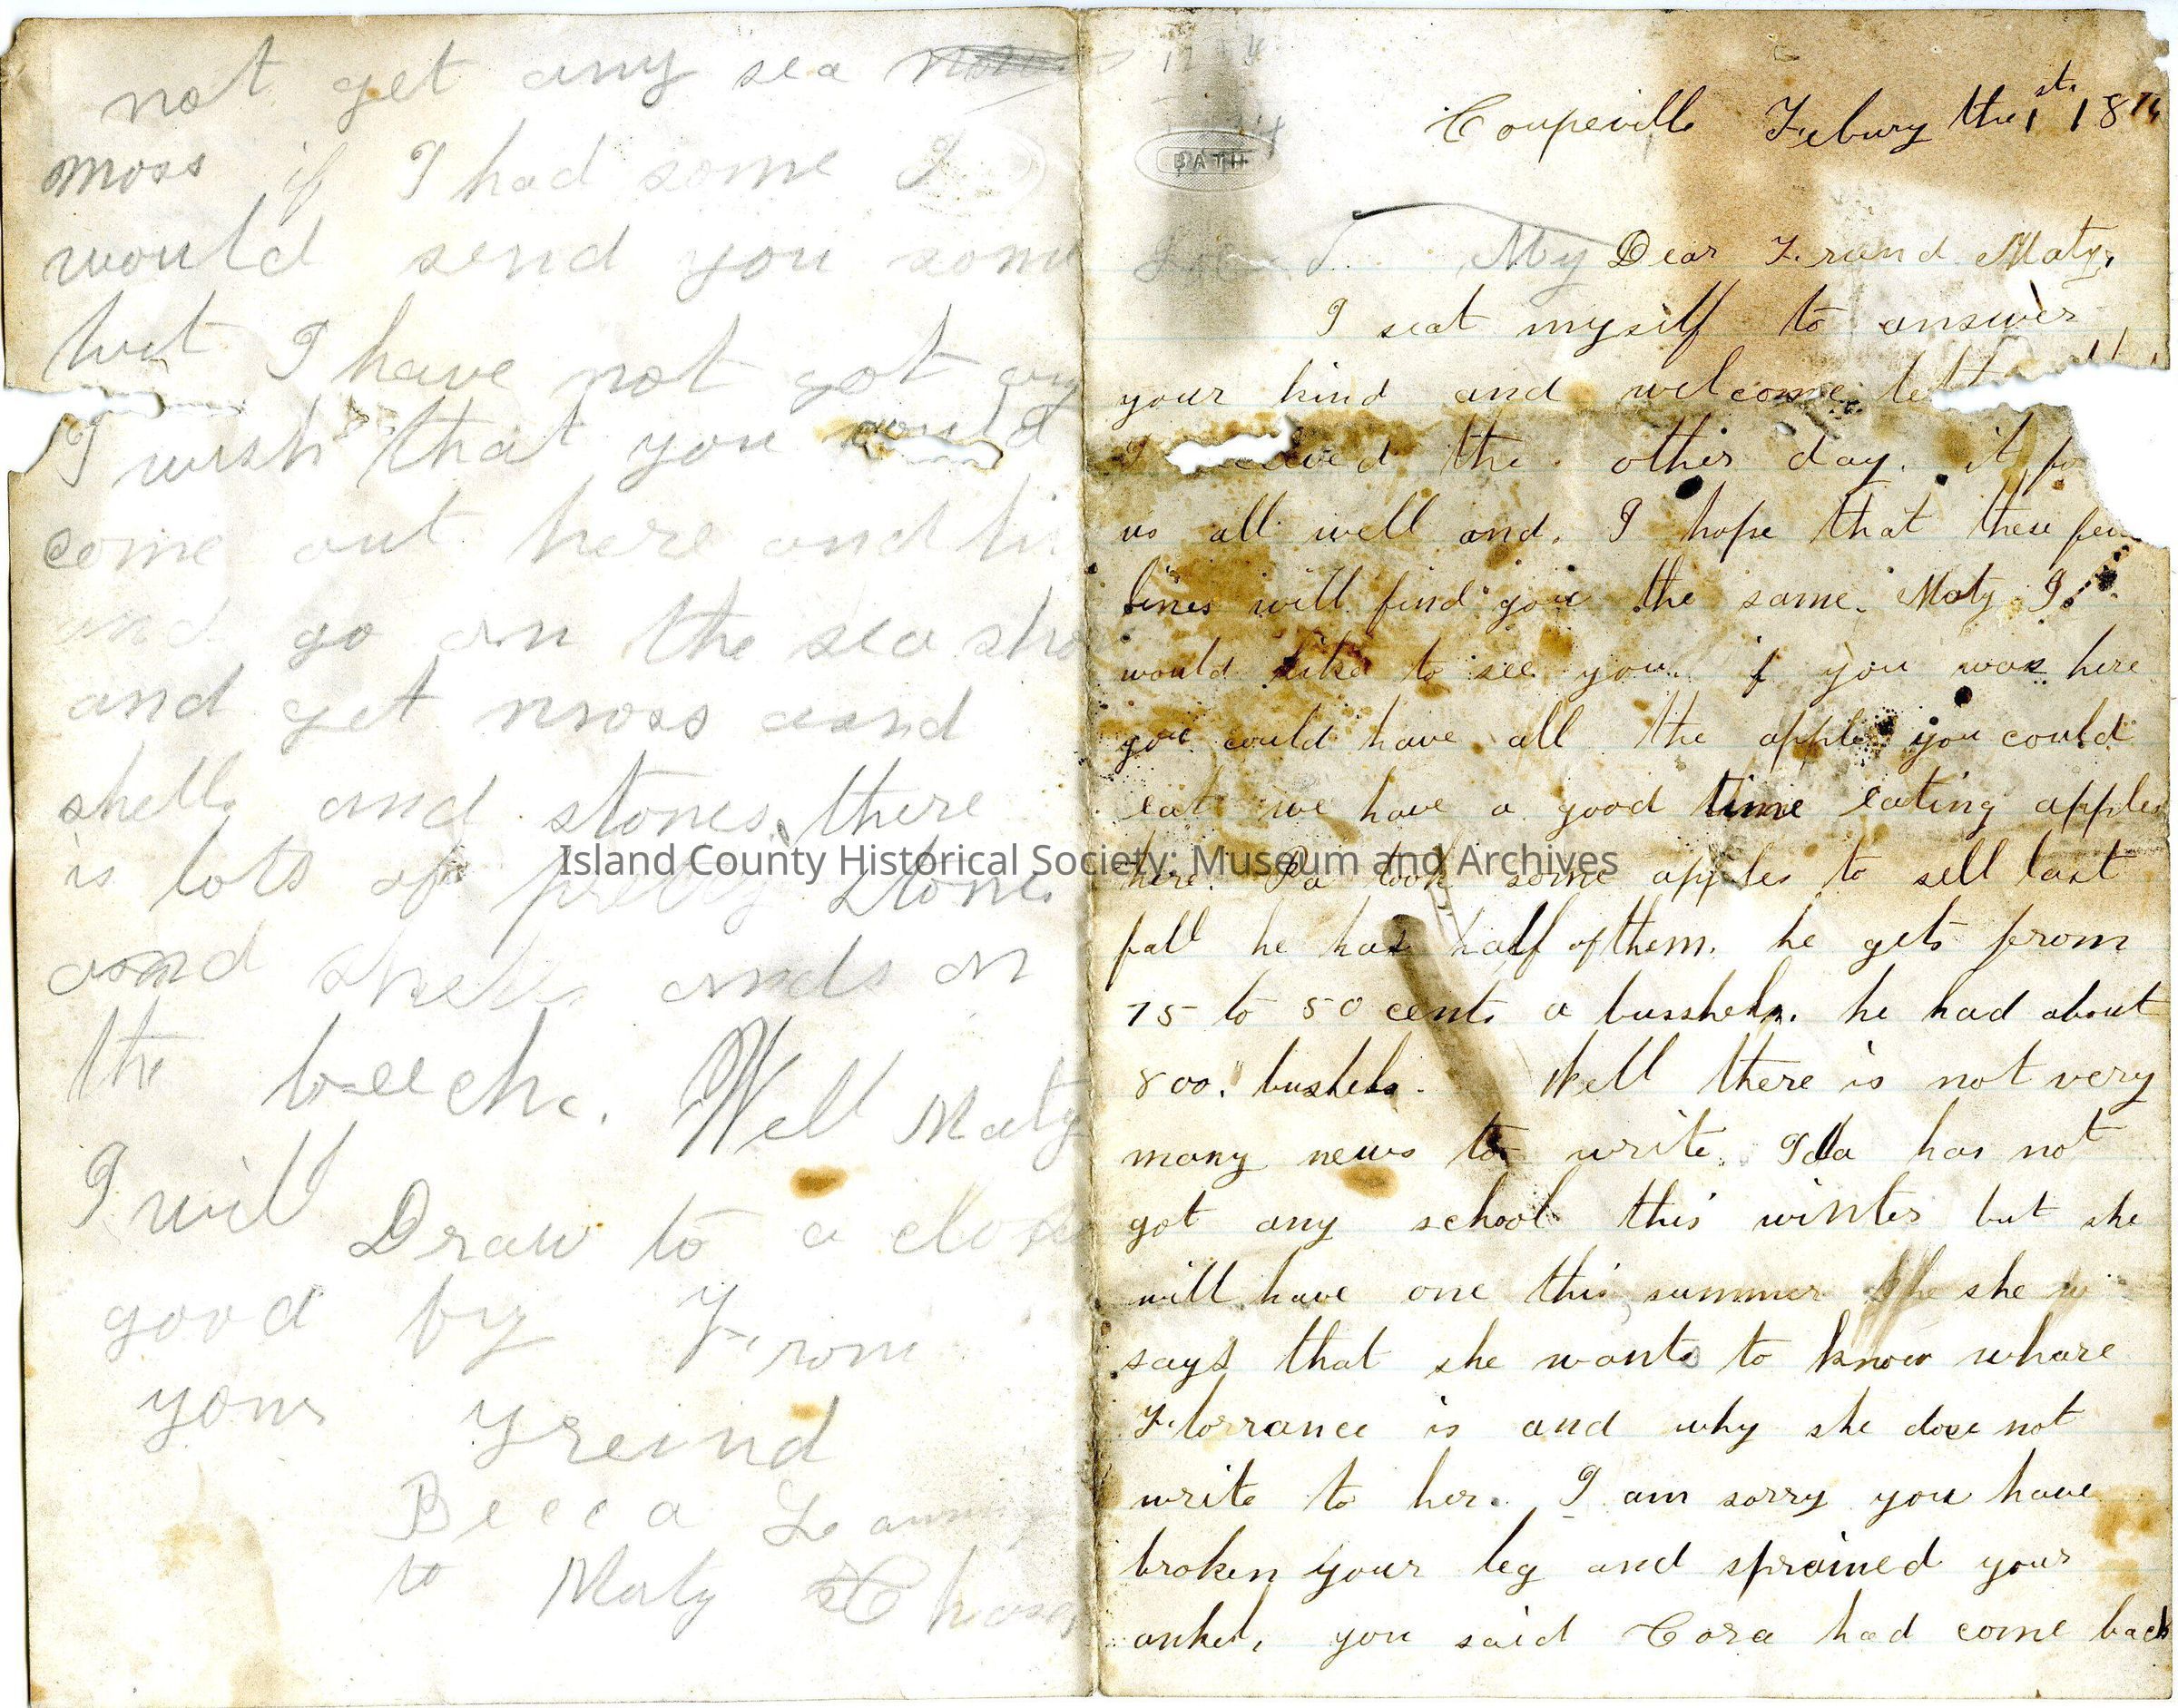 Coupeville Febury the 1st. 18
BATH
My Dear Frund Maty,
I seat myself to answer
your kind and welcome
I the other day. it
us all well and. I hope that these few
lines will find you the same. Maty I
would like to see you. if you was here
you could have all the apples you could
eat we have a good time eating apples
here. Pa took some apples to sell last
fall he has half of them. he gets from
75 to 50 cents a busshels. he had about
800. bushels. Well there is not very
many news to write. Ida has not
got any school this winter but she
will have one this summer she
says that she wants to know whare
Florrance is and why she doee not
write to her. I am sorry you have
broken your leg and sprained your
ankel, you said Cora had come back
not get any sea
moss if I had some I
would send you some
but I have not got any
I wish that you could
come out here and
and go on the sea shore
and get moss and
shells and stones. there
is lots of pretty stones
and shells ands on
the beeche. Well Maty
I will Draw to a close
good by From
your Freind
Becca
to Maty
Island County Historical Society; Museum and Archives